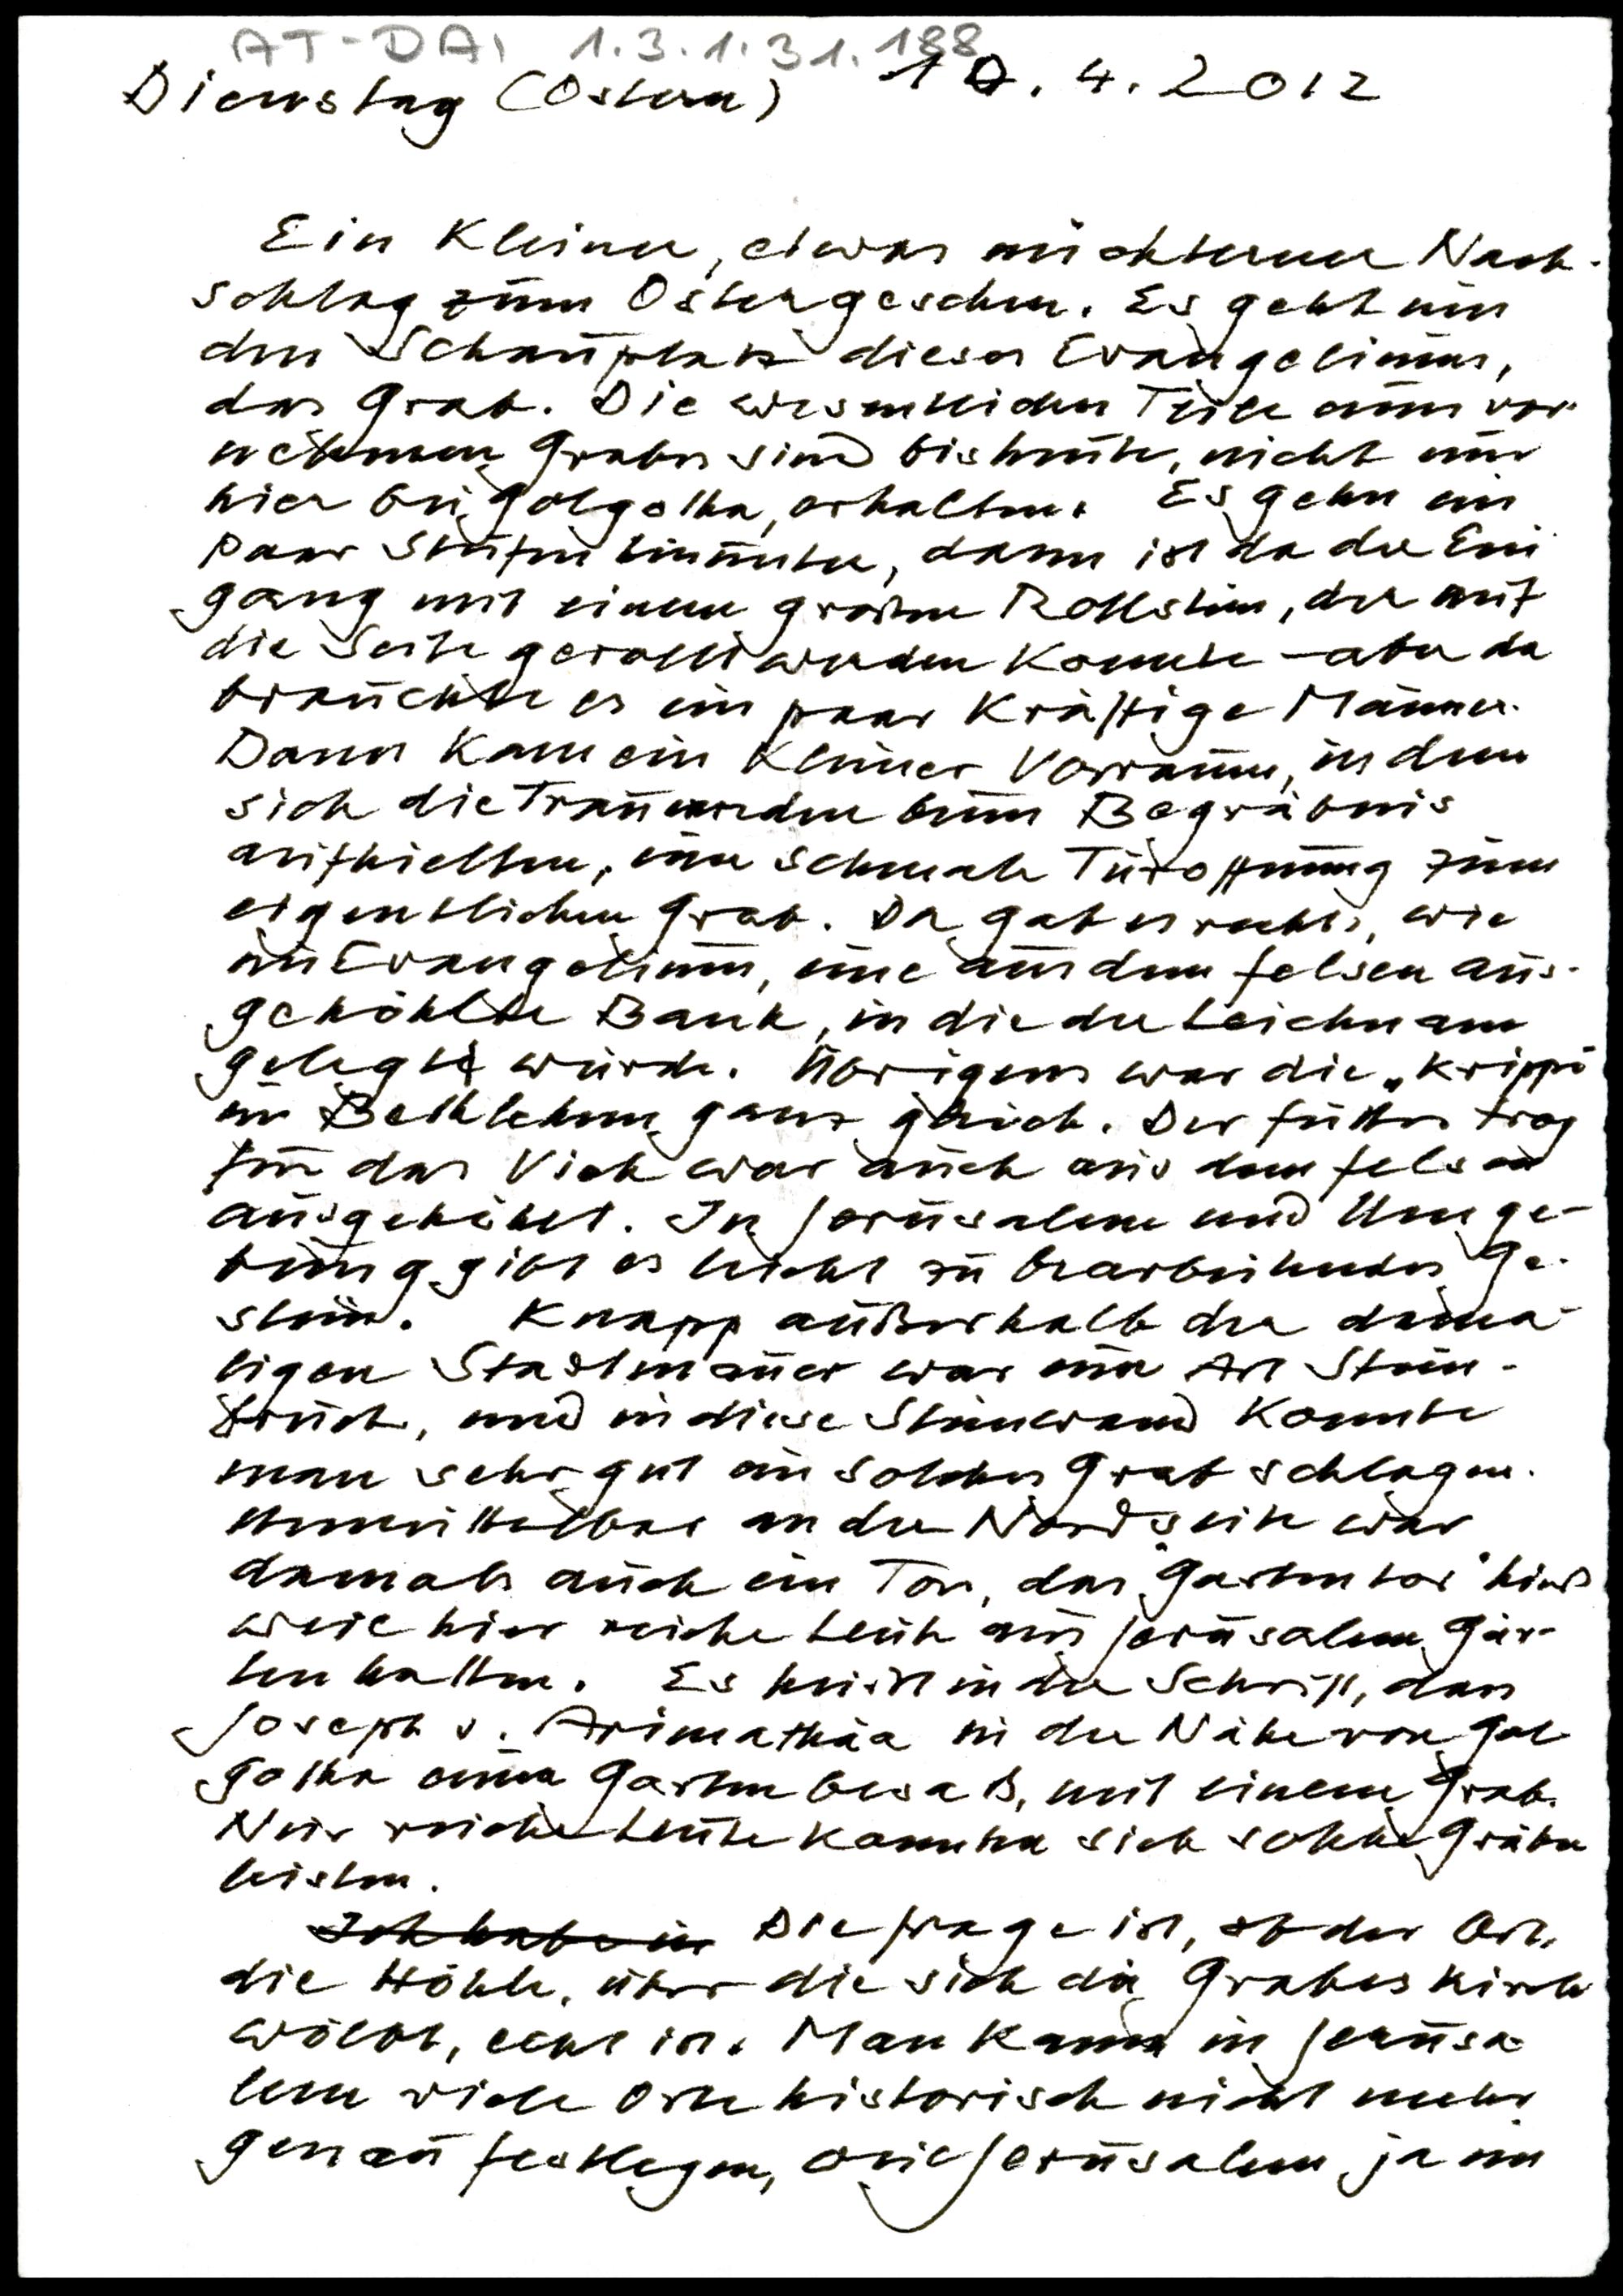 AT-DA, 1.3.1.31.188
Dienstag (Ostern) 10.4.2012
Ein kleiner, etwas nüchterner Nach-
schlag zum Ostergeschen. Es geht um
den Schauplatz dieses Evangeliums,
das Grab. Die wesentlichen Teile eines vor-
nehmen Grabes sind bis heute, nicht nur
hier bei Golgotha, erhalten. Es gehn ein
paar Stufen hinunter, dann ist da der Ein-
gang mit einem großen Rollstein, der auf
die Seite gerollt werden konnte - aber da
brauchte es ein paar kräftige Männer.
Dann kam ein kleiner Vorraum, in dem
sich die Trauernden beim Begräbnis
aufhielten, eine schmale Türöffnung zum
eigentlichen Grab. Da gab es rechts, wie
im Evangelium, eine aus dem Felsen aus-
gehöhlte Bank, in die der Leichnam
gelegt wurde. Übrigens war die „Krippe"
in Bethlehem ganz gleich. Der Futtertrog
für das Vieh war auch aus dem Felsen
ausgehöhlt. In Jerusalem und Umge-
bung gibt es leicht zu bearbeitendes Ge-
stein. Knapp außerhalb der dama-
ligen Stadtmauer war eine Art Stein-
bruch, und in diese Steinwand konnte
man sehr gut ein solches Grab schlagen.
Unmittelbar an der Nordseite war
damals auch ein Tor, das "Gartentor" hieß
weil hier reiche Leute aus Jerusalem Gär-
ten hatten. Es heißt in der Schrift, dass
Joseph v. Arimathäa in der Nähe von Gol-
gotha einen Garten besaß, mit einem Grab.
Nur reiche Leute konnten sich solche Gräber
leisten.
Ich habe in Die Frage ist, ob der Ort,
die Höhle, über die sich die Grabeskirche
wölbt, echt ist. Man kann in Jerusa-
lem viele Orte historisch nicht mehr
genau festlegen, weil Jerusalem ja im